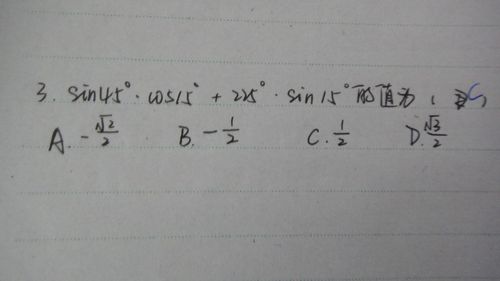 3. sin45°·cos15° + 225°·sin15°的值为( C )
A. -√2/2 B. -1/2 C. 1/2 D. √3/2